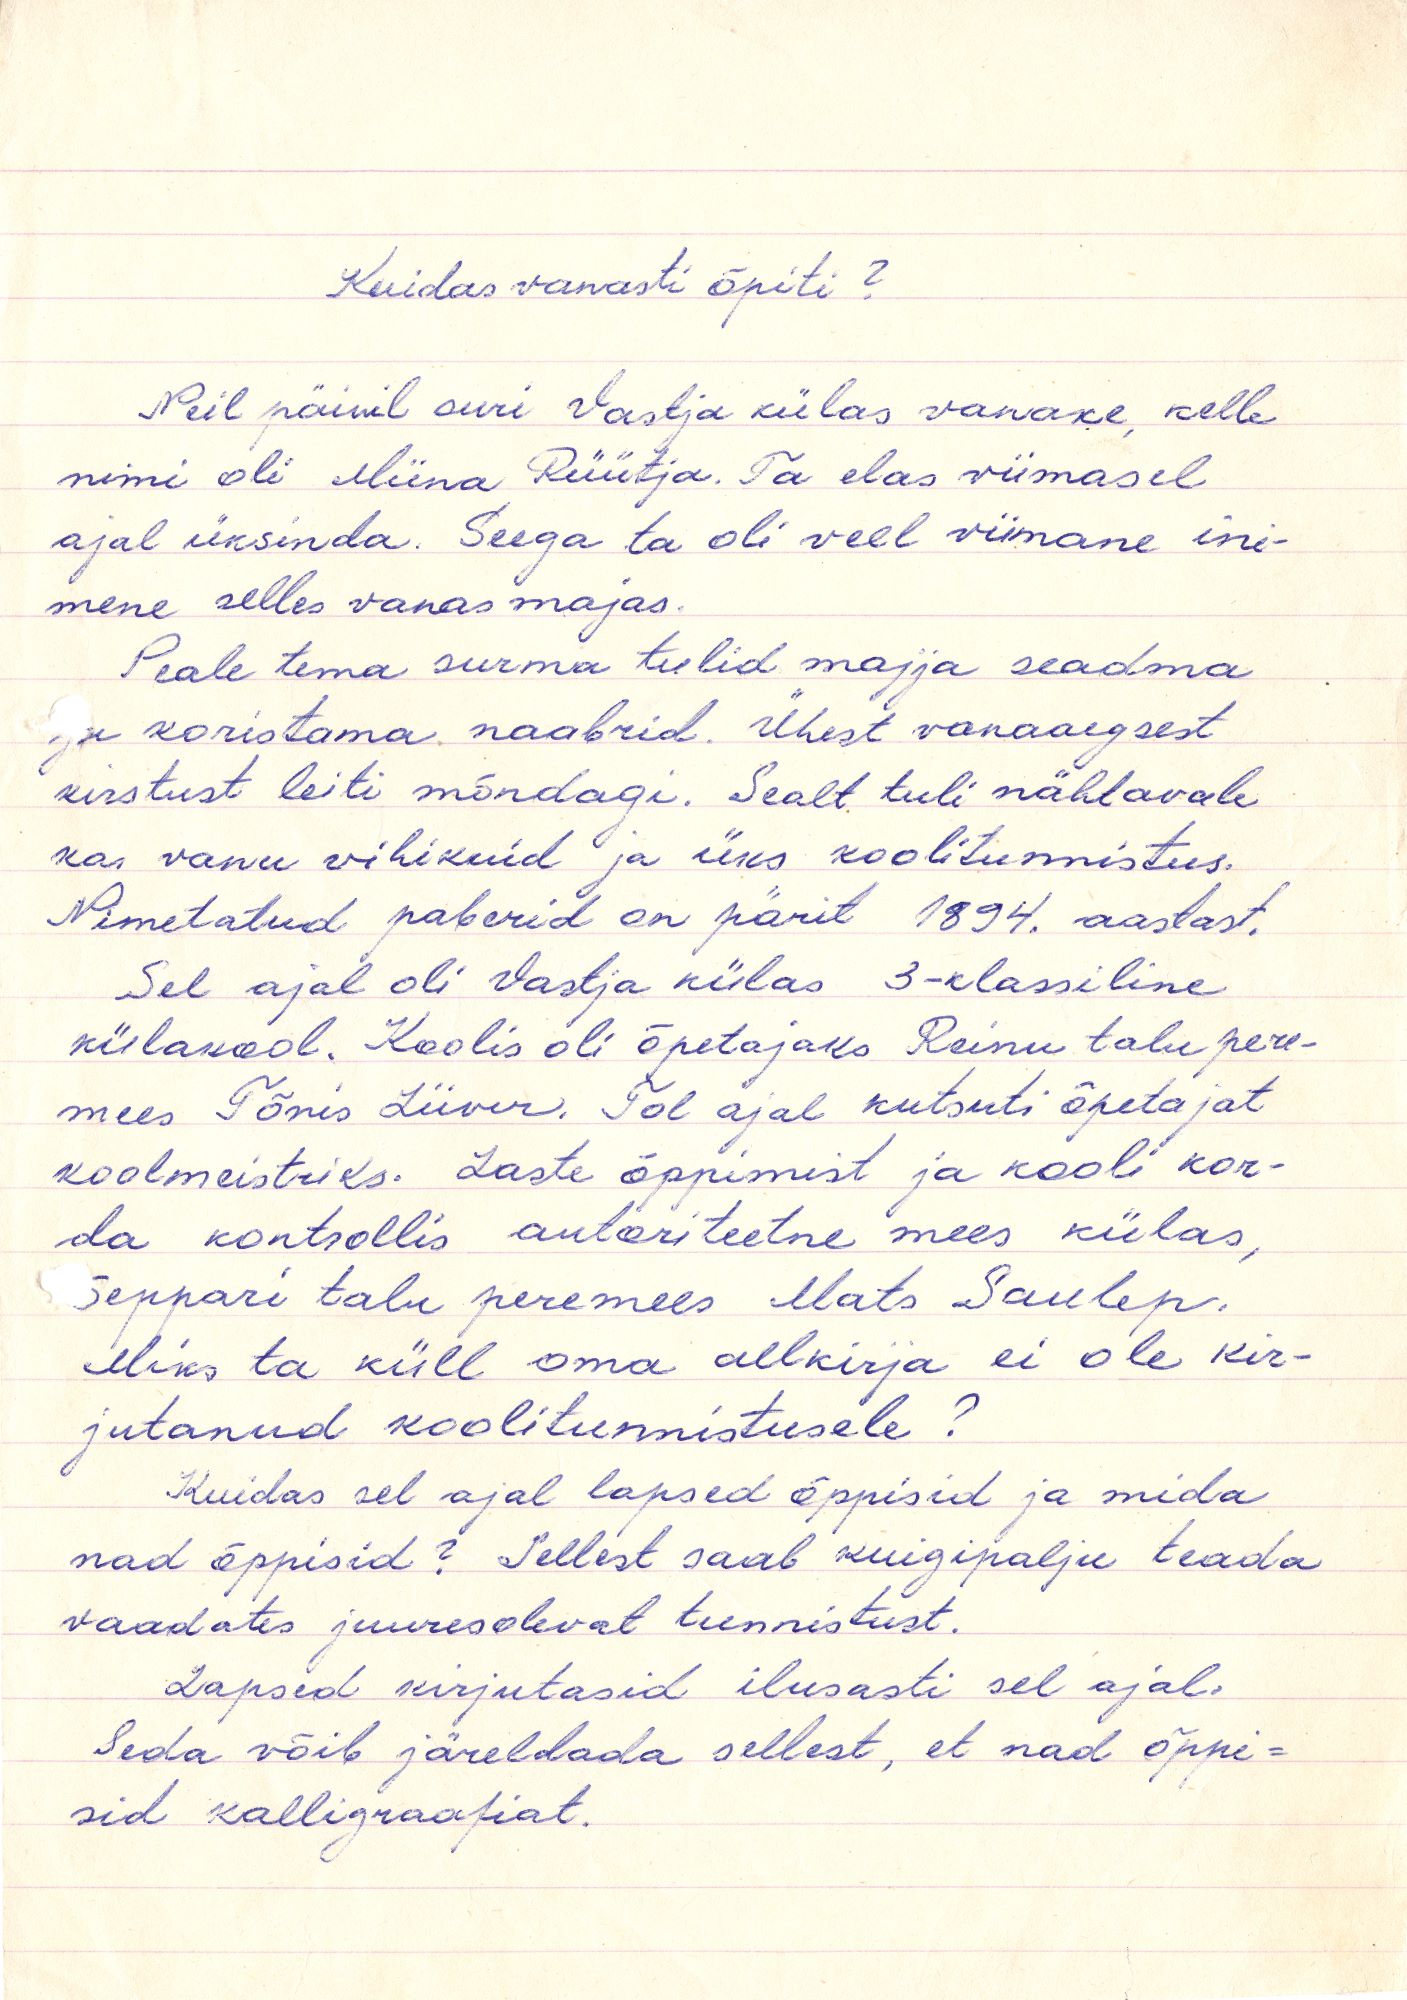 Kuidas vanasti õpiti?
Neil päivil suri Vastja külas vanake, kelle
nimi oli Miina Rüütja. Ta elas viimasel
ajal üksinda. Seega ta oli veel viimane ini-
mene selles vanas majas.
Peale tema surma tulid majja seadma
ja koristama naabrid. Ühest vanaaegsest
kirstust leiti mõndagi. Sealt tuli nähtavale
ka vanu vihikuid ja üks koolitunnistus.
Nimetatud paberid on pärit 1894. aastast.
Sel ajal oli Vastja külas 3-klassiline
külakool. Koolis oli õpetajaks Reinu talu pere-
mees Tõnis Liiver. Tol ajal kutsuti õpetajat
koolmeistriks. Laste õppimist ja kooli kor-
da kontrollis autoriteetne mees külas,
Seppari talu peremees Mats Saulep.
Miks ta küll oma allkirja ei ole kir-
jutanud koolitunnistusele?
Kuidas sel ajal lapsed õppisid ja mida
nad õppisid? Sellest saab kuigipalju teada
vaadates juuresolevat tunnistust.
Lapsed kirjutasid ilusasti sel ajal.
Seda võib järeldada sellest, et nad õppi=
sid kalligraafiat.